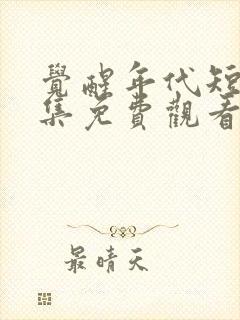 覺醒年代短
集免費觀看
最晴天